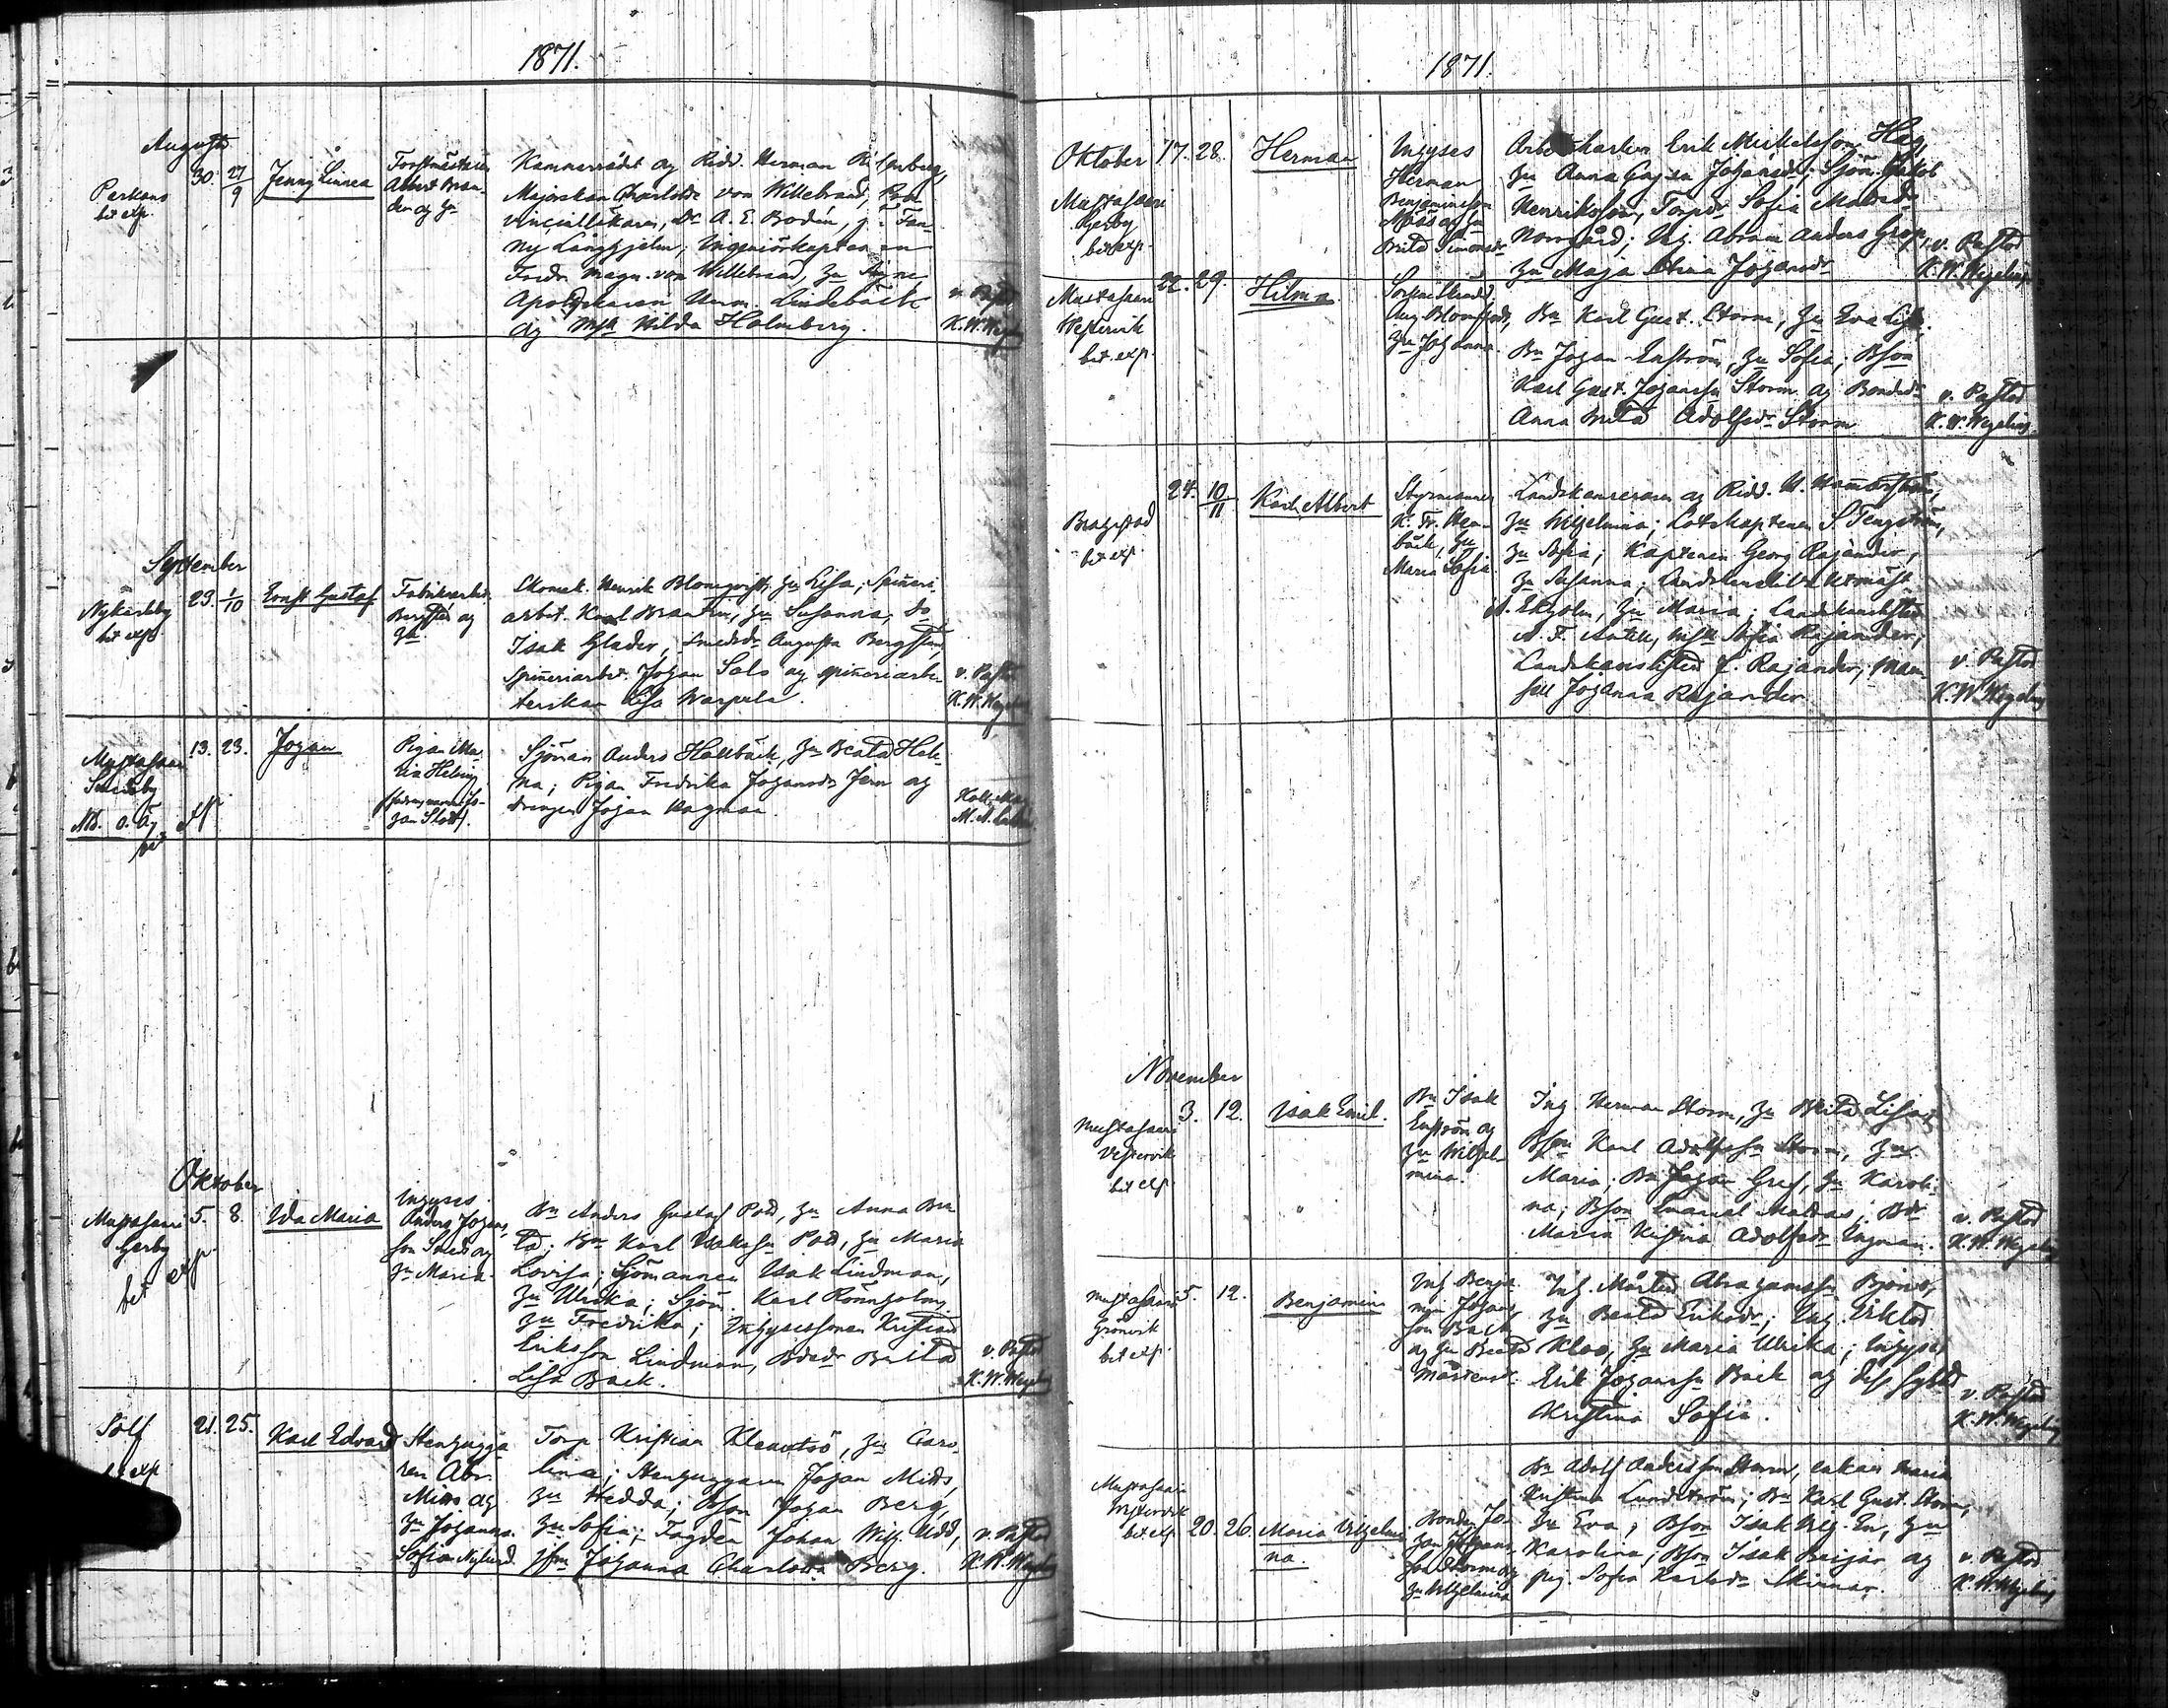 1871.
Augusti
Perkens
bet exp.
30. 27/9
Jenny Linnea
Forstmästaren
Albert Bran-
der og Hu
Kammarrådet og Ridd. Herman Rosenberg,
Majorskan Charlotte von Willebrand, Pro-
vincialläkaren, Dr A. E. Bodén, Fan-
ny Långhjelm; Ingeniörkapten
Fredr. Magn. von Willebrand, Hu Signe,
Apothekaren Herm. Lindebäck
og Msll Hilda Holmberg.
v. Pastor
K. W. Wegelius
September
Nykarleby
bet exp.
23. 1/10
Ernst Gustaf
Fabriksarbet.
Bergsten og
Hu
Skomak. Henrik Blomqvist, Hu Lisa; Spineri-
arbet. Karl Brantin, Hu Susanna; do
Isak Glader, Smedsdr Augusta Bergsten,
Spineriarbet. Johan Salo og spineriarbe-
terskan Lisa Warpula.
v. Pastor
K. W. Wegelius
Mustasaari
Smedsby
13. 23.
Johan
Pigan Ma-
ria Helsing
Sjöman Anders Hallbäck, Hu Beata Hele-
na; Pigan Fredrika Johansdr Jern og
drengen Johan Wagman.
Oktober
Mustasaari
Gerby
bet exp
5. 8.
Ida Maria
Inhyses
Anders Johans-
son Smeds og
Hu Maria.
Bn Anders Gustaf Pått, Hu Anna Bri-
ta; Bn Karl Isakssn Pått, Hu Maria
Lovisa; Sjömannen Isak Lindman,
Hu Ulrika; Sjöm. Karl Rönnholm,
Hu Fredrika; Inhysessonen Kristian
Eriksson Lindman, Bdsdr Brita
Lisa Back.
v. Pastor
K. W. Wegelius
Solf
bet exp
21. 25.
Karl Edvard
Stenhugga-
ren Abr.
Mitts og
Hu Johanna
Sofia Nylund.
Torp. Kristian Klemetsö, Hu Caro-
lina; Stenhuggaren Johan Mitts,
Hu Hedda; Bson Johan Berg,
Hu Sofia; Fogden Johan Wilh. Udd,
jfn Johanna Charlotta Berg.
v. Pastor
K. W. Wegelius
1871.
Oktober
Mustasaari
Gerby
bet exp.
17. 28.
Herman
Inhyses
Herman
Benjaminsson
Nääs og Hu
Brita Simonsdr
Arbetskarlen Erik Mickelsson Hag,
Hu Anna Cajsa Johansdr; Sjöm. Jakob
Henriksson, Torpdr Sofia Matsdr
Norrgård; Inh. Abram Anders Grop,
Hu Maja Stina Johansdr
v. Pastor
K. W. Wegelius
Mustasaari
Westervik
bet exp.
22. 29.
Hilma
Aug. Blomqvist,
Hu Johanna.
Bn Karl Gust. Storm, Hu Eva Lisa;
Bn Johan Enström, Hu Sofia; Bson
Karl Gust. Johanssn Storm og Bondedr
Anna Brita Adolfsdr Storm
v. Pastor
K. W. Wegelius
Brahestad
bet exp.
24. 10/11
Karl Albert
Styrmannen
K. Fr. Sten-
bäck, Hu
Maria Sofia
Landskamreraren og Ridd. U. Hammarström,
Hu Wilhelmina; Lotskaptenen S Tengström,
Hu Sofia; Kaptenen Georg Rajander,
Hu Susanna; Landskanslits Utmäst.
A. Ekholm, Hu Maria; Landskanslisten
A. F. Antell, Msll Sofia Rajander,
Landskanslisten J. Rajander, Mam-
sell Johanna Rajander.
v. Pastor
K. W. Wegelius
November
Mustasaari
Vestervik
bet exp
3. 12.
Isak Emil.
Bn Isak
Enström og
Hu Wilhel-
mina.
Inh. Herman Storm, Hu Brita Lisa;
Bson Karl Adolfssn Storm, Hu
Maria; Bn Johan Gref, Hu Karoli-
na; Bson Emanuel Mattas; Bdr
Maria Kristina Adolfsdr Ingman.
v. Pastor
K. W. Wegelius
Mustasaari
Grönvik
bet exp.
5. 12.
Benjamin
Inh Benja-
min Johans-
son Back
og Hu Beata
Mårtensdr
Inh. Mårten Abrahamssn Björns,
Hu Beata Eriksdr; Inh. Erik
Kloo, Hu Maria Ulrika; Inhyses
Erik Johanssn Back og dess hustru
Kristina Sofia.
v. Pastor
K. W. Wegelius
Mustasaari
Westervik
bet exp
20. 26.
Maria Wilhelmi-
na.
Bonden Jo-
han Johans-
son Storm og
Hu Wilhelmina
Bn Adolf Andersson Storm, enkan Maria
Kristina Lundström; Bn Karl Gust. Storm,
Hu Eva; Bson Isak Wilh. En, Hu
Karolina; Bson Isak Beijar og
pig. Sofia Karlsdr Skinnar.
v. Pastor
K. W. Wegelius